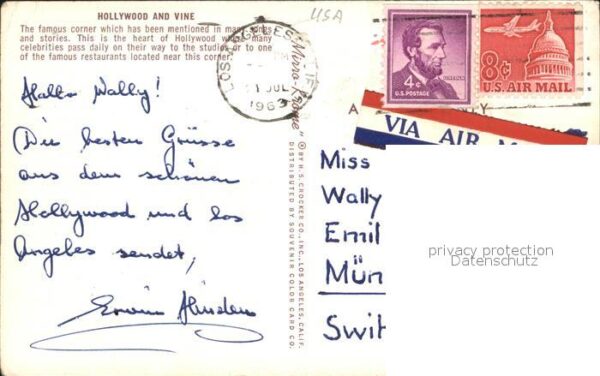 HOLLYWOOD AND VINE
The famous corner which has been mentioned in many songs
and stories. This is the heart of Hollywood where many
celebrities pass daily on their way to the studios or to one
of the famous restaurants located near this corner.
USA
LOS ANGELES, CALIF.
1 JUL
1963
"Mirro-Krome"
® BY H. S. CROCKER CO., INC., LOS ANGELES, CALIF.
DISTRIBUTED BY SOUVENIR COLOR CARD CO.
4¢
LINCOLN
U.S. POSTAGE
8¢
U.S. AIR MAIL
VIA AIR M
Hallo Wally!
Die besten Grüsse
aus dem schönen
Hollywood und Los
Angeles sendet,
Erwin
Miss
Wally
Emil
Mün
Swit
privacy protection
Datenschutz